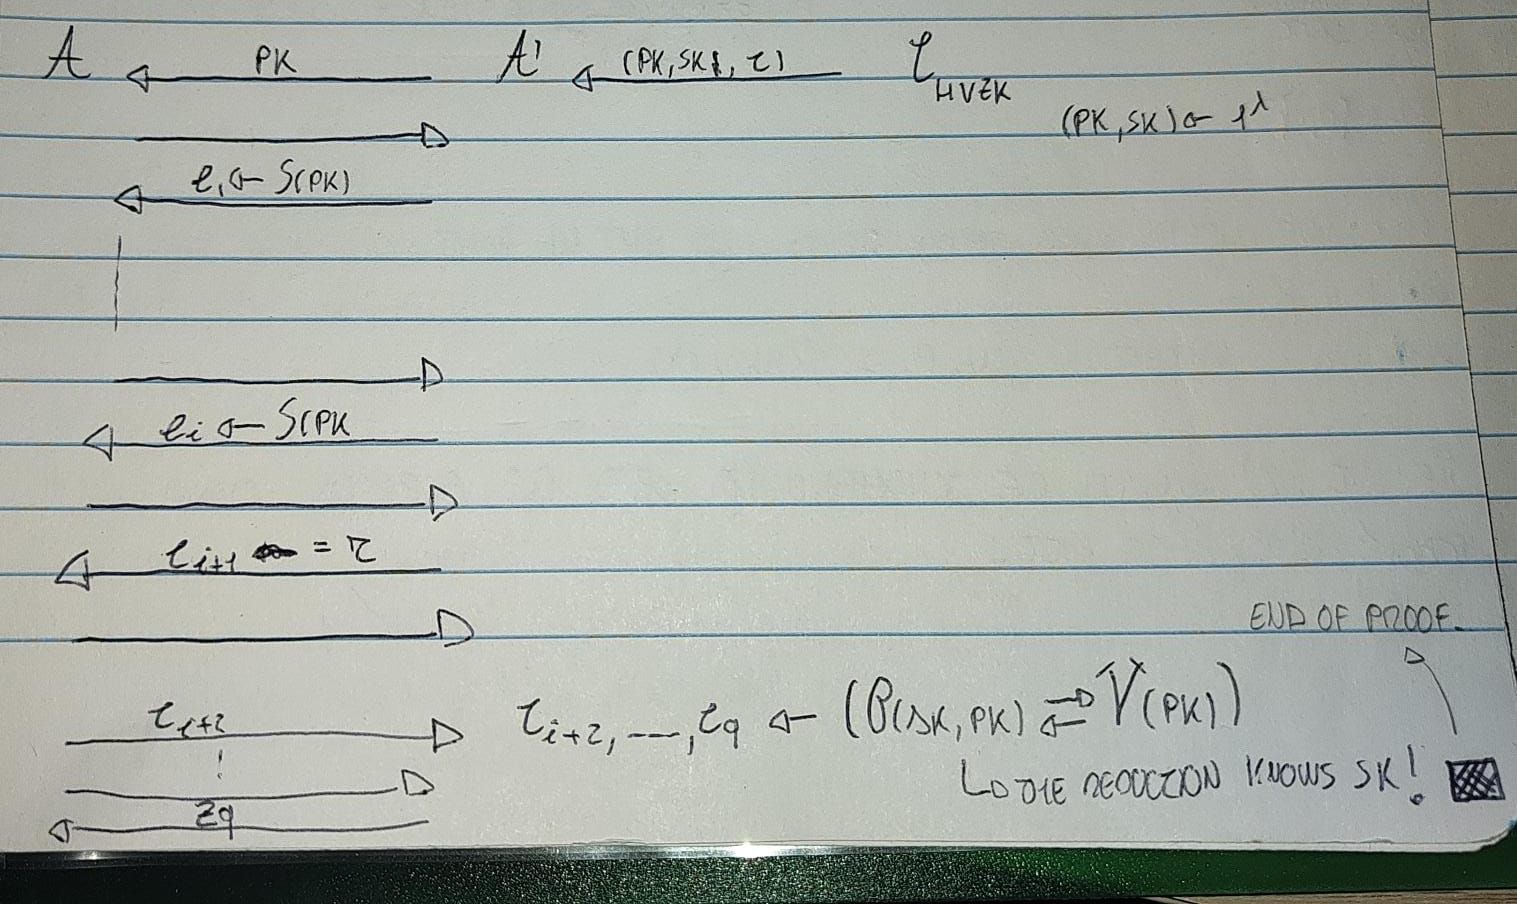 A PK A' (PK, SK, τ) C HVZK
(PK, SK) ← 1^λ
τ₁ ← S(PK)
τᵢ ← S(PK
τᵢ₊₁ = τ
END OF PROOF.
τᵢ₊₂ τᵢ₊₂, ..., τq ← (P(SK, PK) ⇄ V(PK))
τq REDUCTION KNOWS SK!